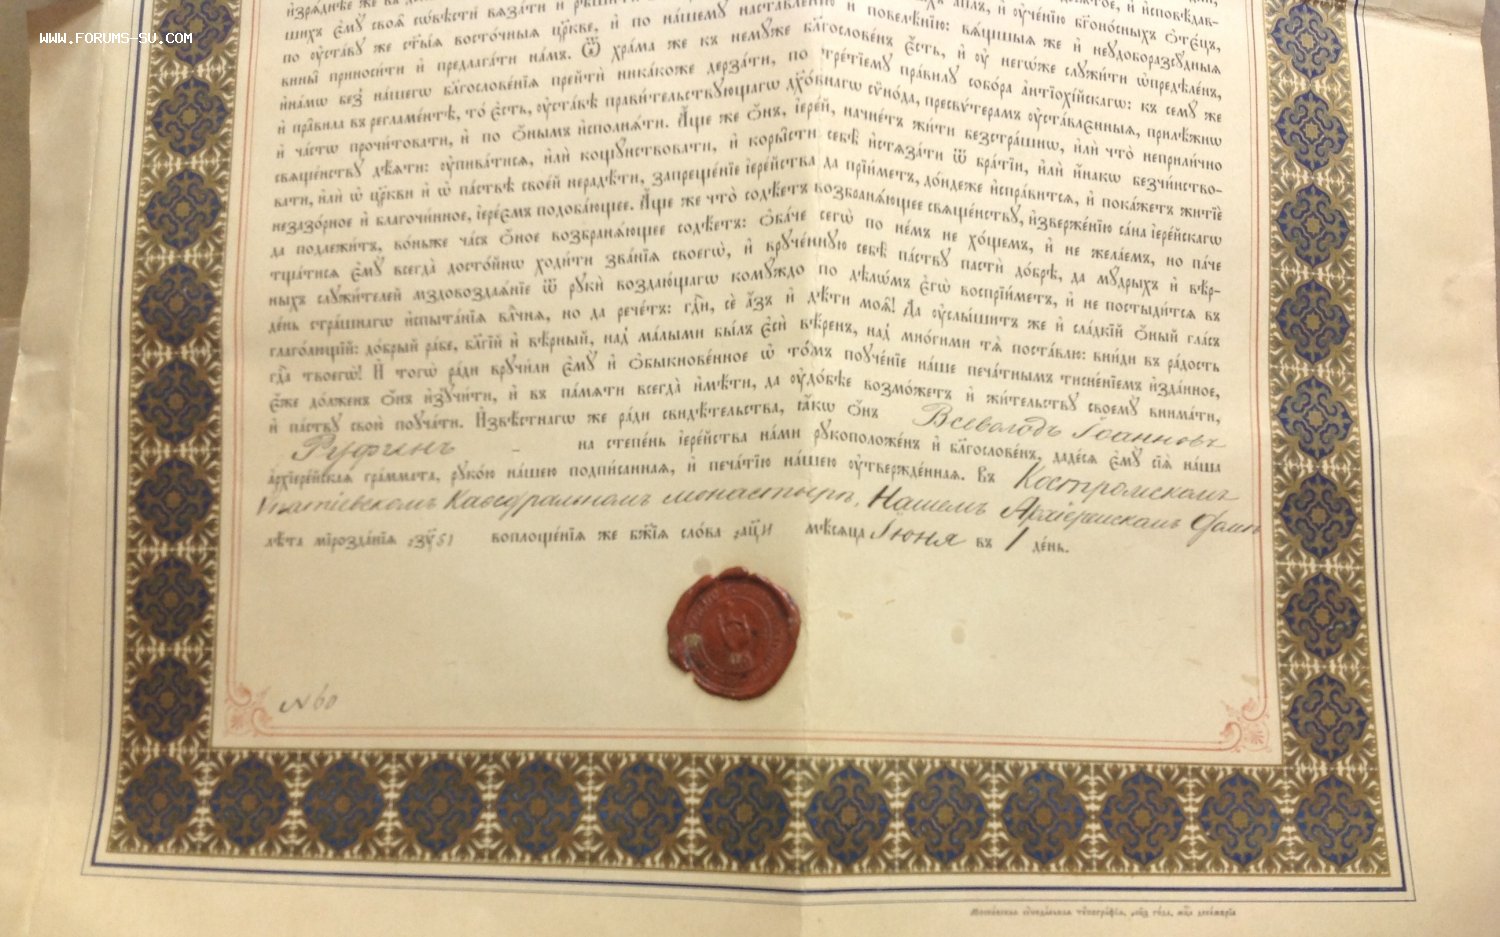 WWW.FORUMS-SU.COM
и҆зрѧ́днѣе же въ
шихъ є҆мꙋ̀ своѧ̑ сѡ́вѣсти вѧза́ти и҆ рѣши́ти
по ѹ҆ста́вꙋ же ст҃ы́ѧ восто́чныѧ цр҃кве, и҆ по на́шемꙋ наставле́нїю и҆ повелѣ́нїю: вѧ́щшыѧ же и҆ неѹдоборазсꙋ́дныѧ
вины̑ приноси́ти и҆ предлага́ти на́мъ. Ѿ хра́ма же къ немꙋ́же бл҃гослове́нъ є҆́сть, и҆ ѹ҆ негѡ́же слꙋжи́ти ѡ҆предѣле́нъ,
и҆на́мѡ без̾ на́шегѡ бл҃гослове́нїѧ прейтѝ ника́коже дерза́ти, по тре́тїемꙋ пра́вилꙋ собо́ра а҆нтїохі́йскагѡ: къ семꙋ́ же
и҆ пра̑вила въ регламе́нтѣ, то́ є҆сть, ѹ҆ста́вѣ прави́тельствꙋющагѡ дх҃о́внагѡ сѵно́да, пресвѵ́терамъ ѹ҆ста́вленныѧ, прилѣ́жнѡ
и҆ ча́стѡ прочитова́ти, и҆ по ѻ҆́нымъ и҆сполнѧ́ти. А҆́ще же ѻ҆́нъ, і҆ере́й, начне́тъ жи́ти безстра́шнѡ, и҆лѝ что̀ неприли́чно
свѧще́нствꙋ дѣ́ѧти: ѹ҆пива́тисѧ, и҆лѝ кощꙋ́нствовати, и҆ коры̑сти себѣ̀ и҆стѧза́ти ѿ бра́тїи, и҆лѝ и҆́накѡ безчи́нство-
вати, и҆лѝ ѡ҆ цр҃кви и҆ ѡ҆ па́ствѣ свое́й нерадѣ́ти, запреще́нїе і҆ере́йства да прїи́метъ, до́ндеже и҆спра́витсѧ, и҆ пока́жетъ житїѐ
незазо́рное и҆ благочи́нное, і҆ере́ємъ подоба́ющее. А҆́ще же что̀ содѣ́етъ возбранѧ́ющее свѧще́нствꙋ, и҆зверже́нїю са́на і҆ере́йскагѡ
да подлежи́тъ, во́ньже ча́съ ѻ҆́ное возбранѧ́ющее содѣ́етъ: ѻ҆ба́че сегѡ̀ по не́мъ не хо́щемъ, и҆ не жела́емъ, но па́че
тща́тисѧ є҆мꙋ̀ всегда̀ досто́йнѡ ходи́ти зва́нїѧ своегѡ̀, и҆ врꙋче́ннꙋю себѣ̀ па́ствꙋ пастѝ до́брѣ, да мꙋ́дрыхъ и҆ вѣ́р-
ныхъ слꙋжи́телей мздовоздаѧ́нїе ѿ рꙋкѝ воздаю́щагѡ комꙋ́ждо по дѣлѡ́мъ є҆гѡ̀ воспрїи́метъ, и҆ не постыди́тсѧ въ
де́нь стра́шнагѡ и҆спыта́нїѧ вл҃чнѧ, но да рече́тъ: гд҇и, сѐ а҆́зъ и҆ дѣ́ти моѧ̑! Да ѹ҆слы́шитъ же и҆ сла́дкїй ѻ҆́ный гла́съ
глаго́лющїй: до́брый ра́бе, бл҃гі́й и҆ вѣ́рный, над̾ ма́лыми бы́лъ є҆сѝ вѣ́ренъ, над̾ мно́гими тѧ̀ поста́влю: вни́ди въ ра́дость
гд҇а твоегѡ̀! И҆ тогѡ̀ ра́ди врꙋчи́ли є҆мꙋ̀ и҆ ѻ҆быкнове́нное ѡ҆ то́мъ поꙋче́нїе на́ше печа́тнымъ тисне́нїемъ и҆зда́нное,
є҆́же до́лженъ ѻ҆́нъ и҆зꙋчи́ти, и҆ въ па́мѧти всегда̀ и҆мѣ́ти, да ѹ҆до́бѣе возмо́жетъ и҆ жи́тельствꙋ своемꙋ̀ внима́ти,
и҆ па́ствꙋ свою̀ поꙋча́ти. И҆звѣ́стнагѡ же ра́ди свидѣ́тельства, ꙗ҆́кѡ ѻ҆́нъ Всеволодъ Іоанновъ
Руфинъ на степе́нь і҆ере́йства на́ми рꙋкоположе́нъ и҆ бл҃гослове́нъ, даде́сѧ є҆мꙋ̀ сїѧ̀ на́ша
а҆рхїере́йская гра́ммата, рꙋко́ю на́шею подпи́санная, и҆ печа́тїю на́шею ѹ҆твержде́нная. Въ Костромскомъ
Ипатіевскомъ Каѳедральномъ монастырѣ, Нашемъ Архіерейскомъ Домѣ
лѣ́та мірозда́нїѧ ҂зу҃ 51 воплоще́нїѧ же бж҃їѧ сло́ва ҂ац҃ и мѣ́сѧца Іюня въ 1 де́нь.
№ 60
Московская сѵнодальная тѵпографія,